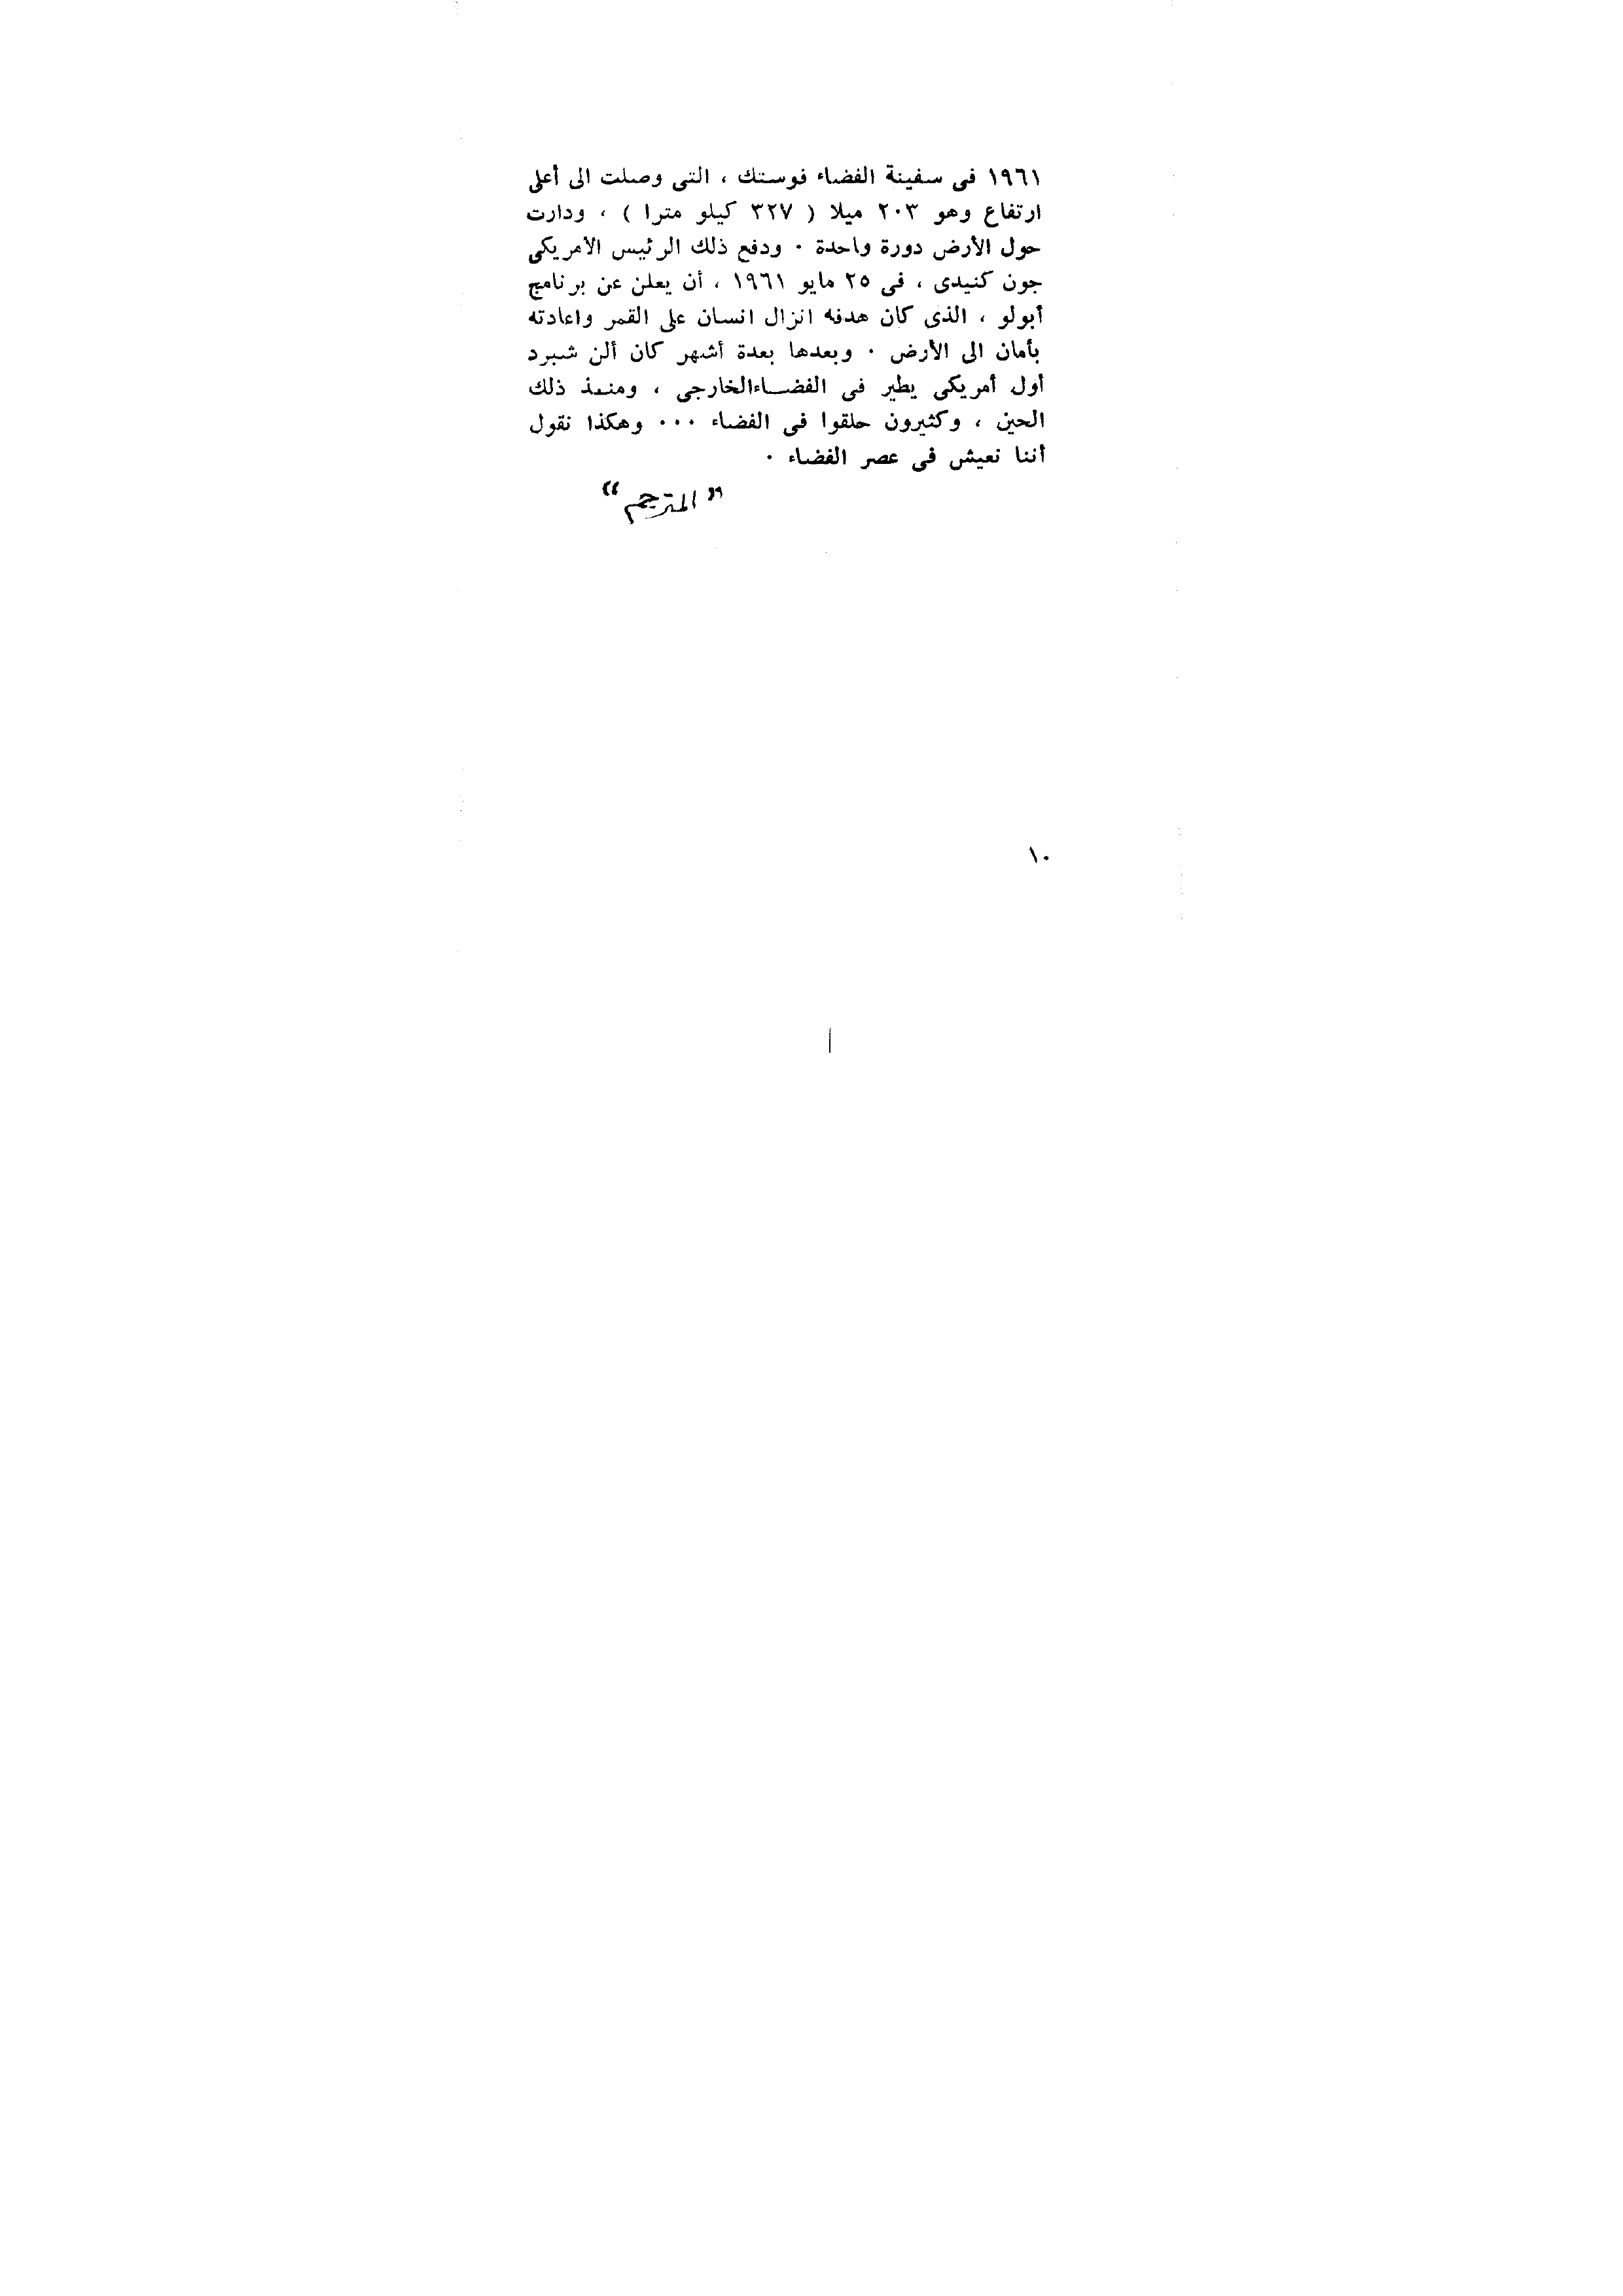 ١٩٦١ فى سفينة الفضاء فوستك ، التى وصلت الى أعلى
ارتفاع وهو ٢٠٣ ميلا ( ٣٢٧ كيلو مترا ) ، ودارت
حول الأرض دورة واحدة ٠ ودفع ذلك الرئيس الأمريكى
جون كنيدى ، فى ٢٥ مايو ١٩٦١ ، أن يعلن عن برنامج
أبولو ، الذى كان هدفه انزال انسان على القمر واعادته
بأمان الى الأرض ٠ وبعدها بعدة أشهر كان ألن شبرد
أول أمريكى يطير فى الفضاءالخارجى ، ومنذ ذلك
الحين ، وكثيرون حلقوا فى الفضاء ٠٠٠ وهكذا نقول
أننا نعيش فى عصر الفضاء ٠
"المترجم"
١٠